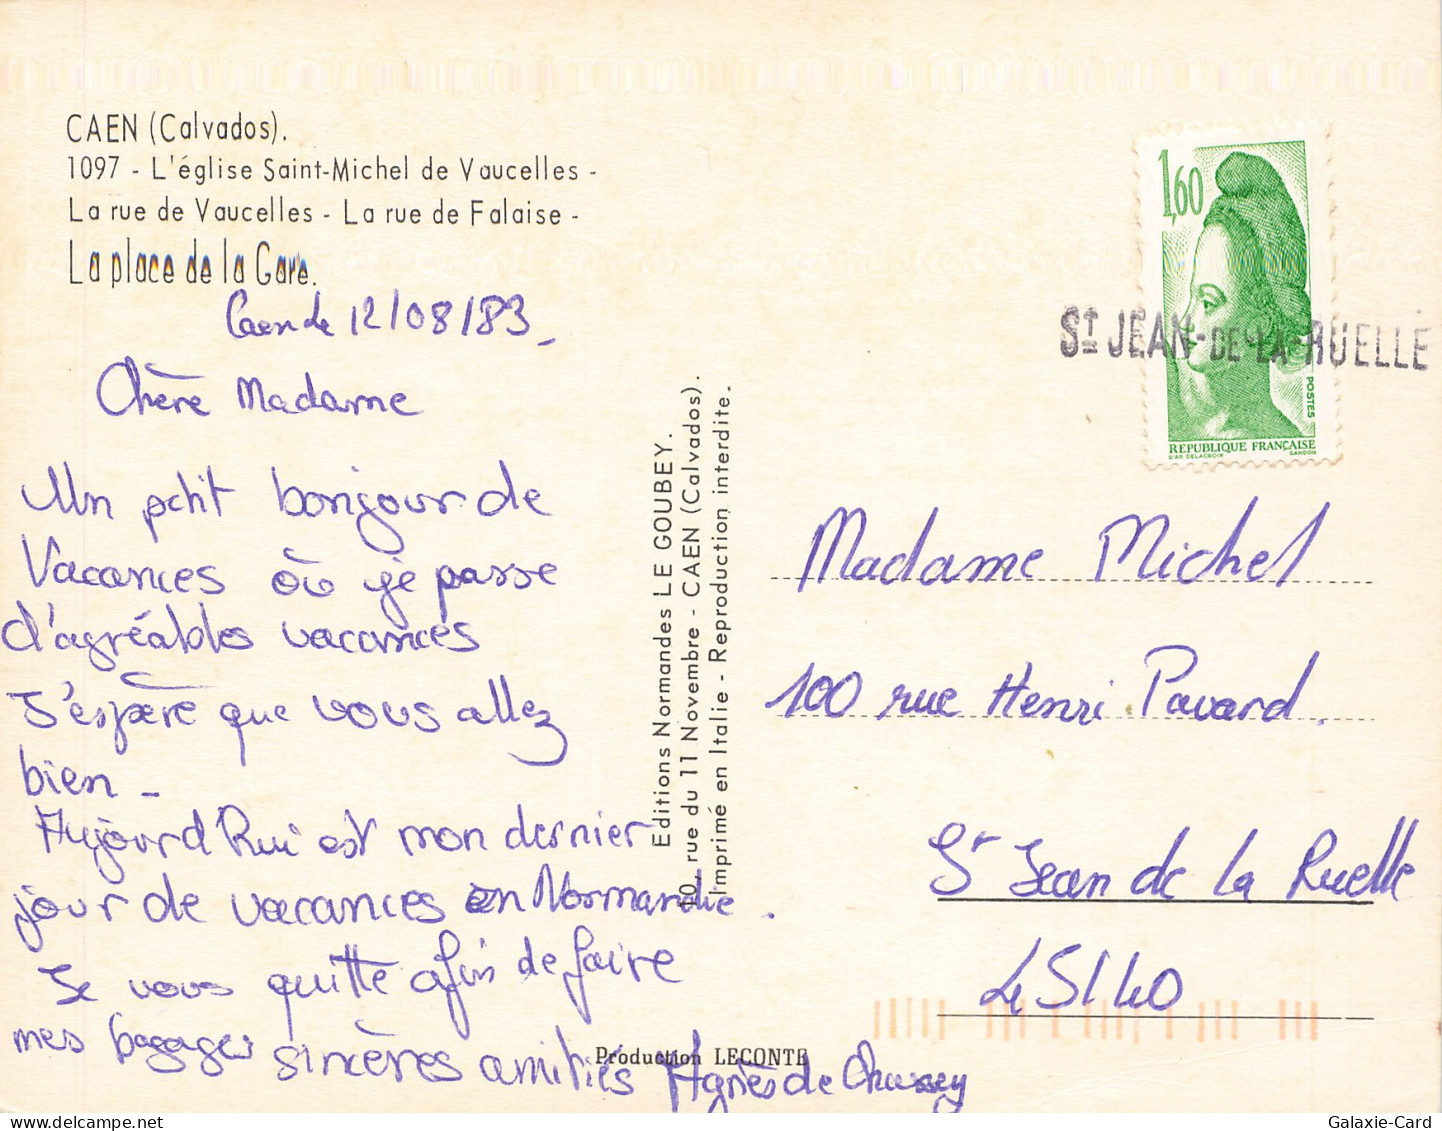 CAEN (Calvados).
1097 - L'église Saint-Michel de Vaucelles -
La rue de Vaucelles - La rue de Falaise -
La place de la Gare.
Caen le 12/08/83
Chère Madame
Un petit bonjour de
Vacances où je passe
d'agréables vacances
J'espère que vous allez
bien -
Aujourd'hui est mon dernier
jour de vacances en Normandie.
Je vous quitte afin de faire
mes bagages sincères amitiés Agnès de
Editions Normandes LE GOUBEY.
10, rue du 11 Novembre - CAEN (Calvados).
Imprimé en Italie - Reproduction interdite.
Production LECONTE
1,60
POSTES
REPUBLIQUE FRANÇAISE
D'AP. DELACROIX GANDON
ST JEAN-DE-LA-RUELLE
Madame Michel
100 rue Henri Pavard.
St Jean de la Ruelle
45140
Galaxie-Card